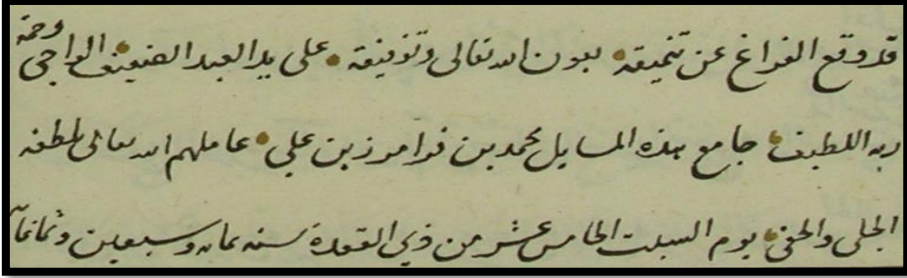 قد وقع الفراغ عن تنميقه بعون الله تعالى وتوفيقه على يد العبد الضعيف الراجى رحمة
ربه اللطيف جامع هذه المسايل محمد بن فرامرز بن على عاملهم الله تعالى بلطفه
الجلى والخفى يوم السبت الخامس عشر من ذى القعدة سنه ثمان وسبعين وثمانمائة